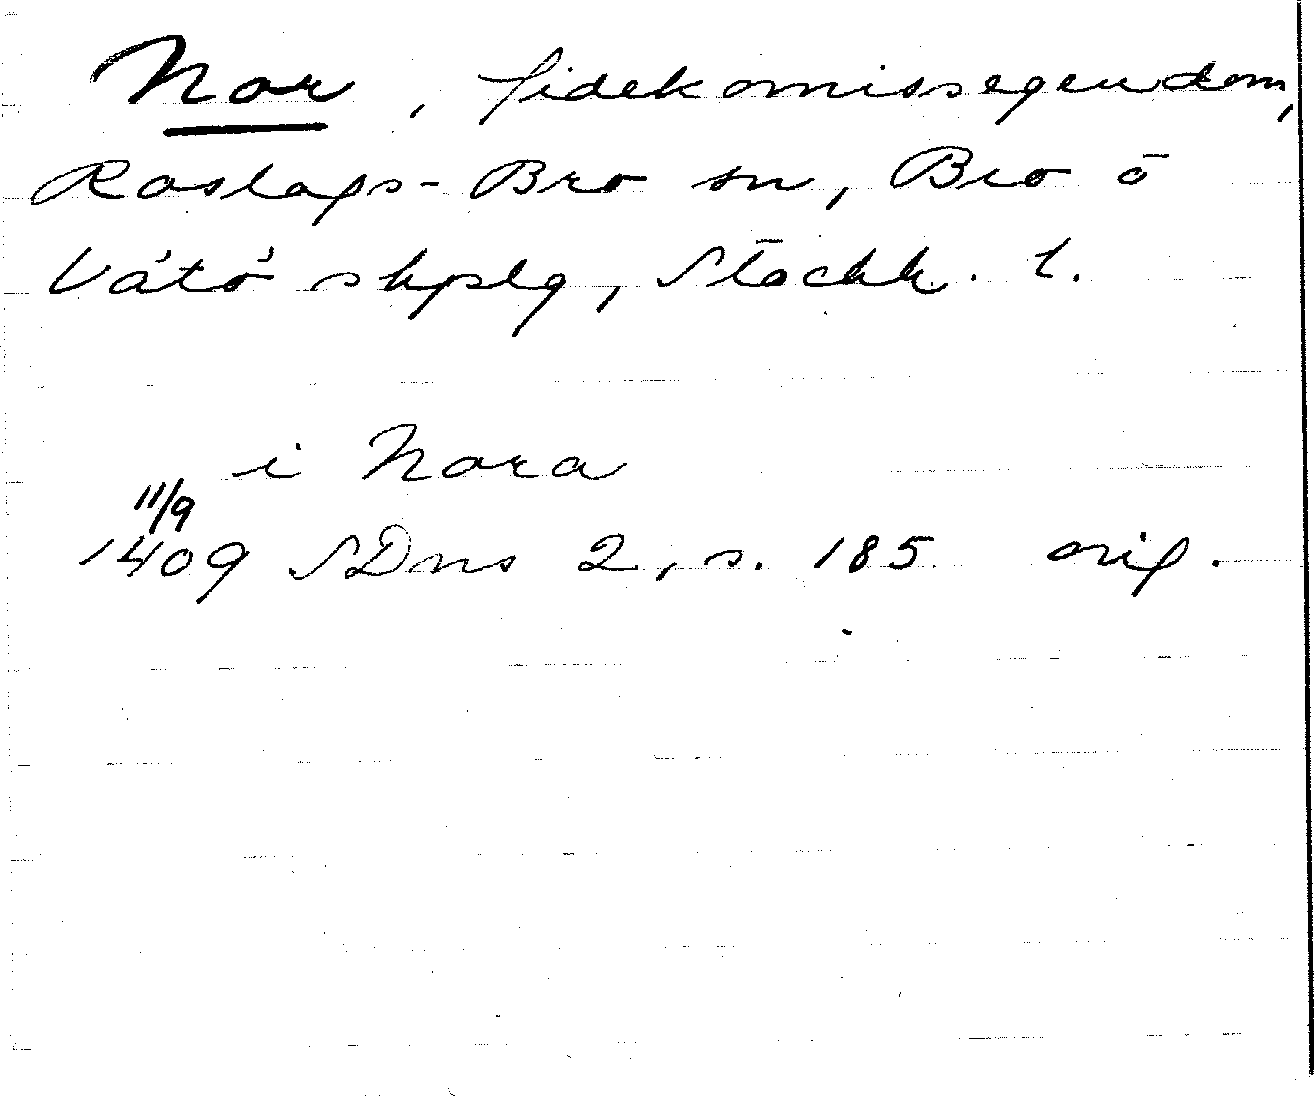 Nor, fidekomissegendom,
Roslags-Bro sn, Bro ō
Vätö skplg, Stockh. l.
i Nora
11/9
1409 SDns 2, s. 185 orig.